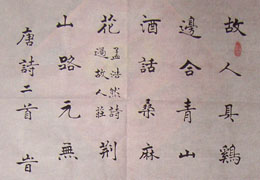 故人具鷄
邊合青山
酒話桑麻
花
孟浩然詩
過故人莊
荆
山路元無
唐詩二首 旹